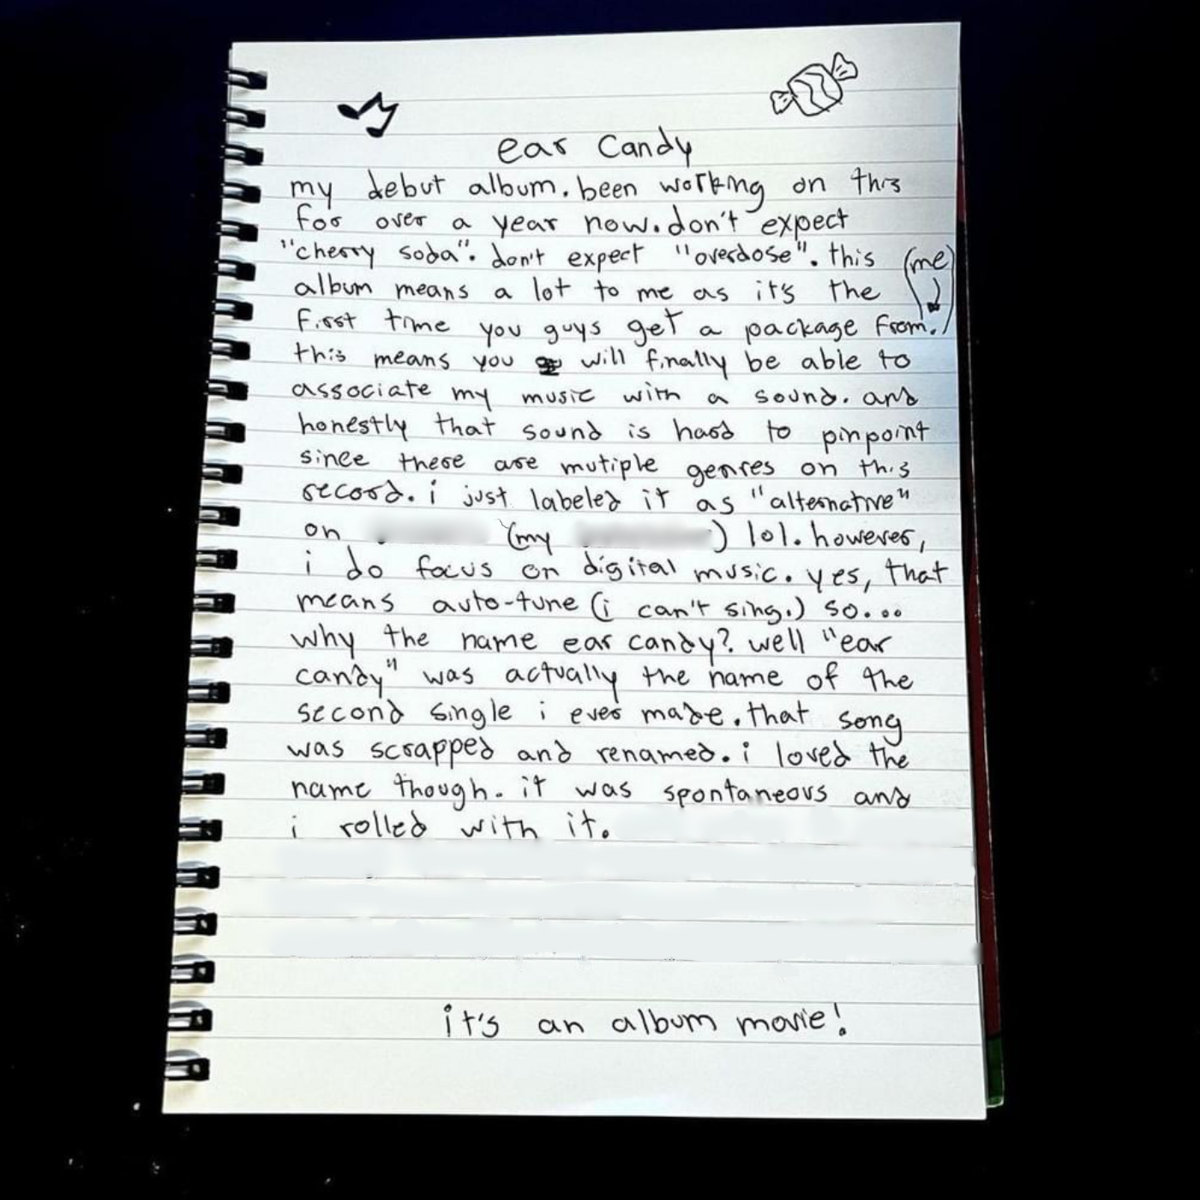 ear candy
my debut album. been working on this
for over a year now. don't expect
"cherry soda". don't expect "overdose". this (me)
album means a lot to me as it's the
first time you guys get a package from.
this means you will finally be able to
associate my music with a sound. and
honestly that sound is hard to pinpoint
since there are mutiple genres on this
record. i just labeled it as "alternative"
on (my ) lol. however,
i do focus on digital music. yes, that
means auto-tune (i can't sing.) so....
why the name ear candy? well "ear
candy" was actually the name of the
second single i ever made. that song
was scrapped and renamed. i loved the
name though. it was spontaneous and
i rolled with it.
it's an album movie!